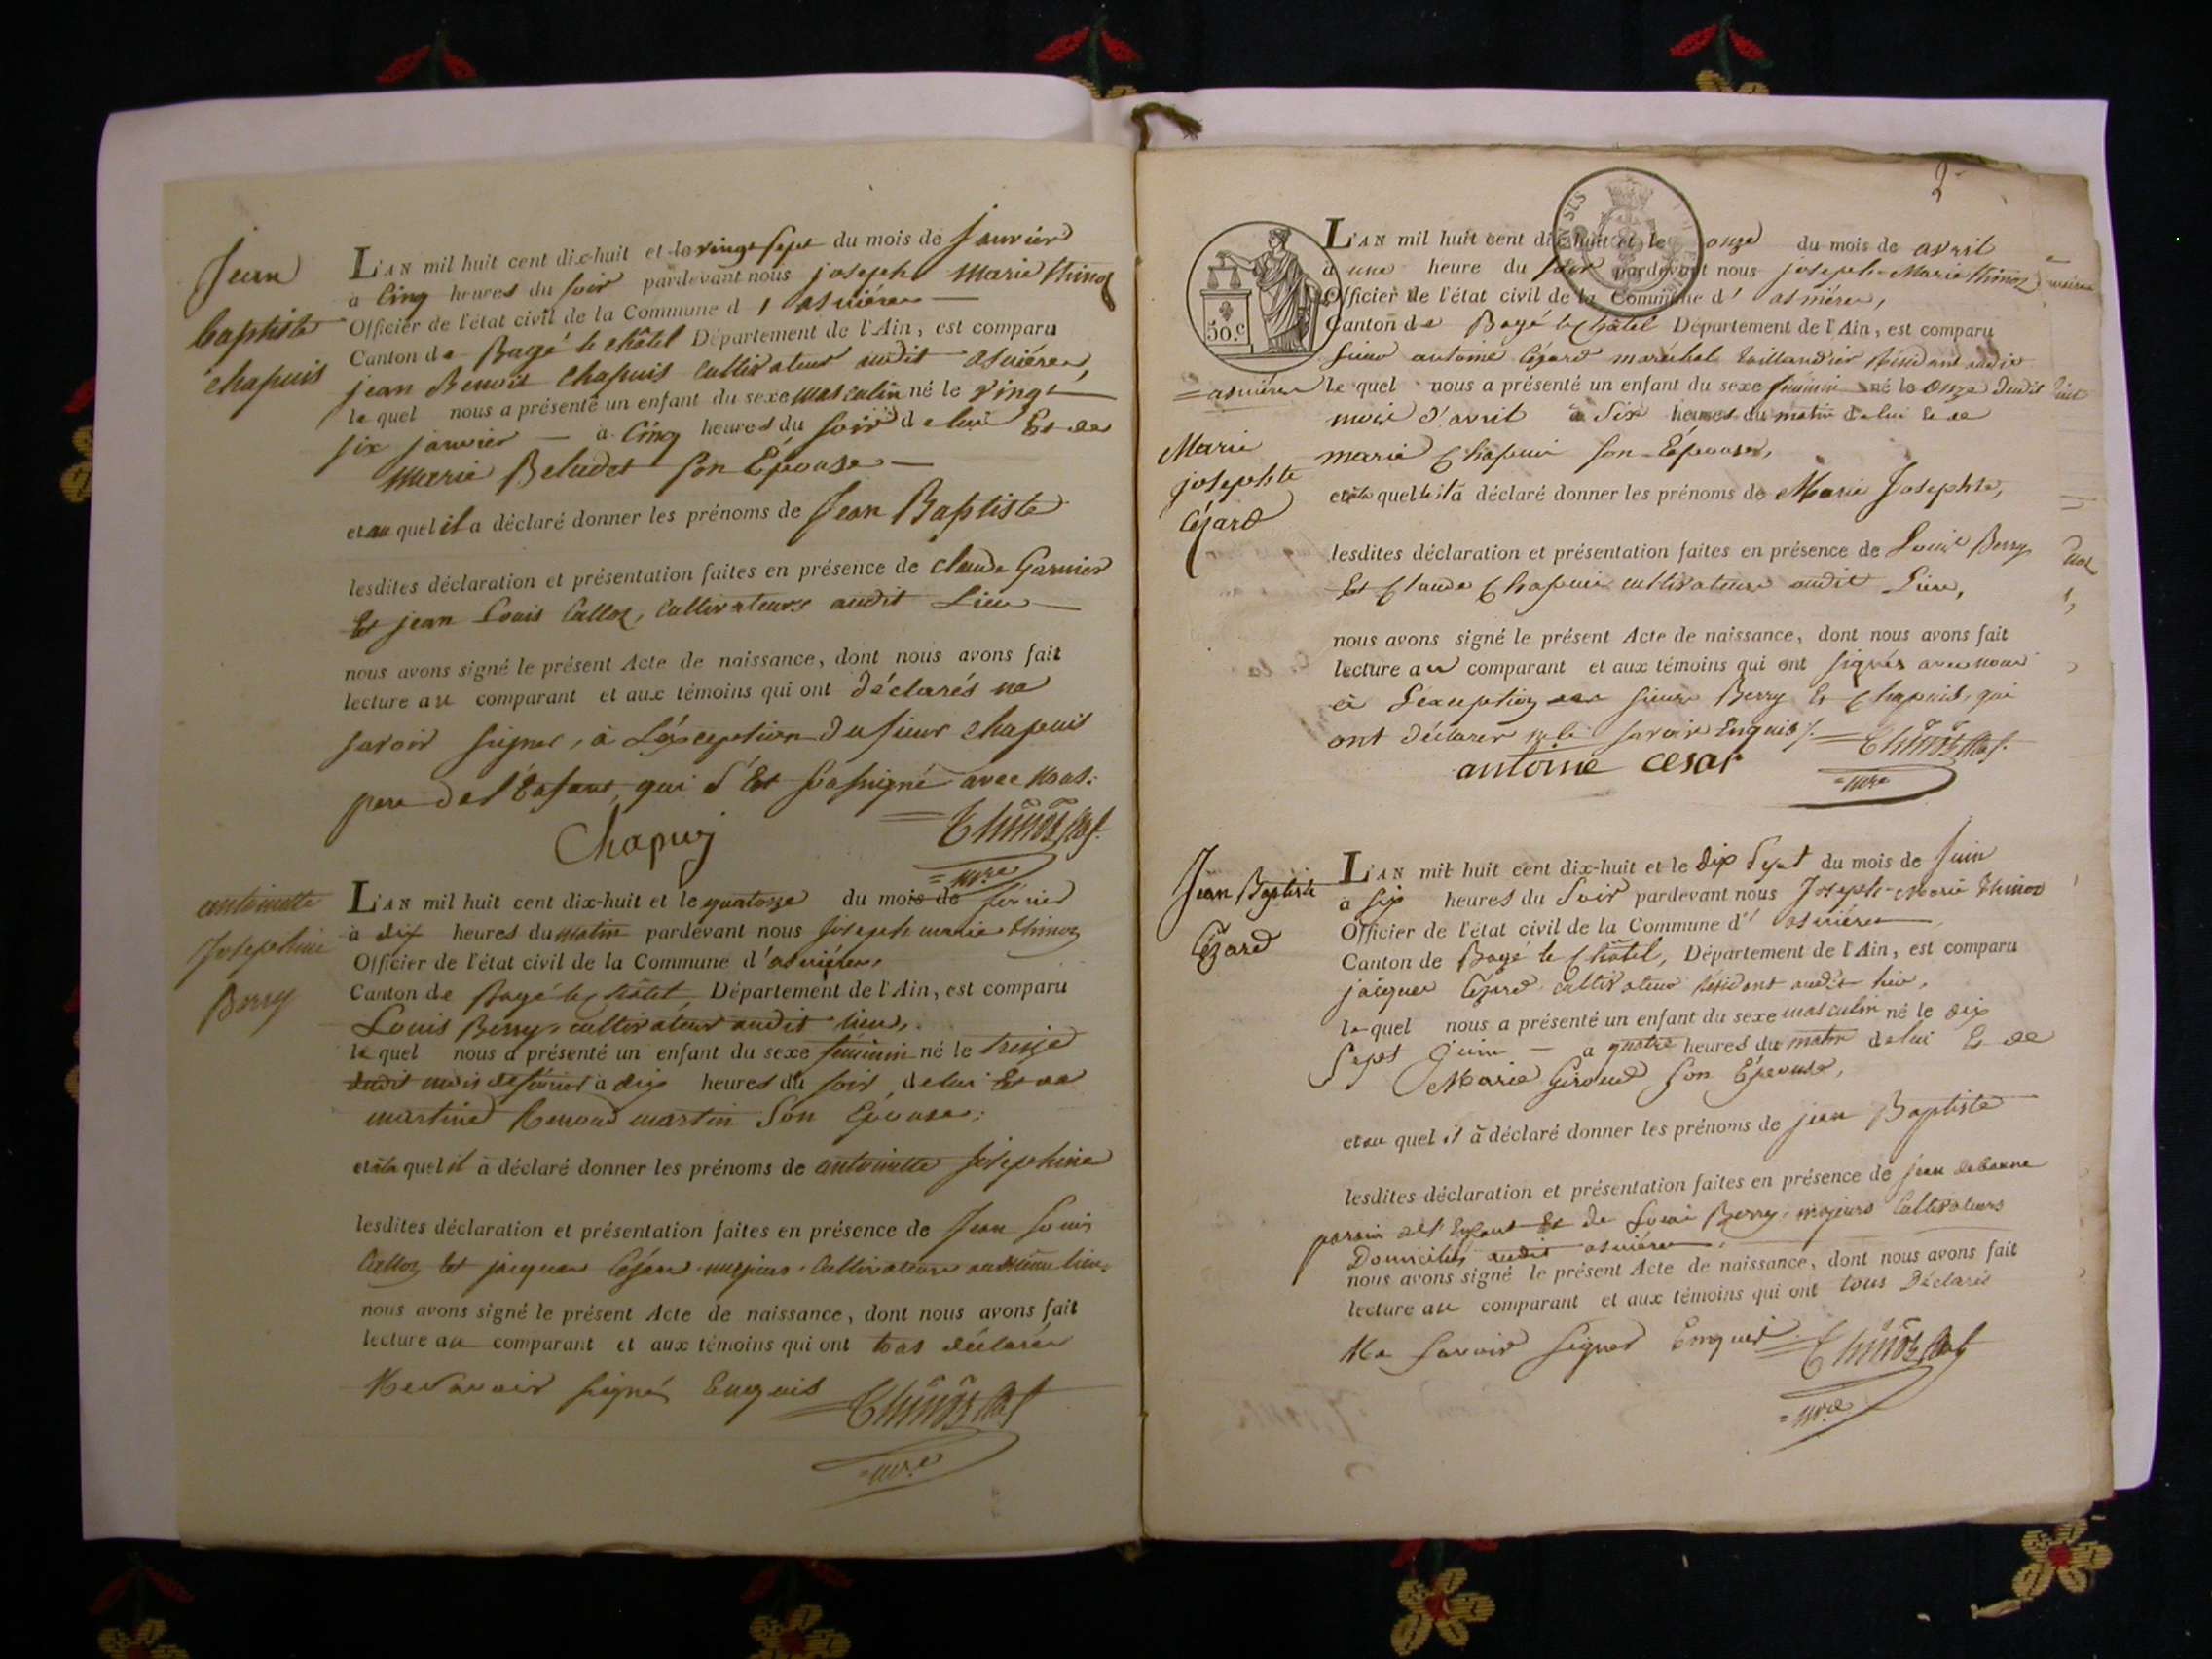 Jean
baptiste
chapuis
L'AN mil huit cent dix-huit et le vingt sept du mois de janvier
à cinq heures du soir pardevant nous joseph marie thinoz
Officier de l'état civil de la Commune d' asnières
Canton de Bagé le châtel Département de l'Ain, est comparu
jean Benoit chapuis cultivateur audit asnières,
le quel nous a présenté un enfant du sexe masculin né le vingt
six janvier à cinq heures du soir de lui Et de
marie Beludet son Epouse
et au quel il a déclaré donner les prénoms de Jean Baptiste
lesdites déclaration et présentation faites en présence de claude Garnier
Et jean Louis Calloz, cultivateurs audit Lieu
nous avons signé le présent Acte de naissance, dont nous avons fait
lecture au comparant et aux témoins qui ont déclarés ne
savoir signer, à L'éxception du sieur chapuis
pere de l'Enfant qui s'Est soussigné avec nous.
Chapuy
Thinoz
mre
antoinette
Josephine
Berry
L'AN mil huit cent dix-huit et le quatorze du mois de février
à dix heures du matin pardevant nous joseph marie thinoz
Officier de l'état civil de la Commune d'asnières,
Canton de Bagé le châtel Département de l'Ain, est comparu
Louis Berry, cultivateur audit lieu,
le quel nous a présenté un enfant du sexe féminin né le treize
dudit mois de février à dix heures du soir, de lui Et de
martine Renoud martin Son Epouse;
et à la quel il à déclaré donner les prénoms de antoinette josephine
lesdites déclaration et présentation faites en présence de Jean Louis
Calloz Et jacques Cézare majeurs Cultivateurs audit lieu.
nous avons signé le présent Acte de naissance, dont nous avons fait
lecture au comparant et aux témoins qui ont tous déclarés
Ne savoir signés Enquis
Thinoz
mre
2
50.c
L'AN mil huit cent dix-huit et le onze du mois de avril
à une heure du soir pardevant nous joseph-Marie thinoz
Officier de l'état civil de la Commune d' asnières,
Canton de Bagé le châtel Département de l'Ain, est comparu
sieur antoine Cézard maréchal taillandier résidant audit
= asnières le quel nous a présenté un enfant du sexe féminin né le onze dudit
mois d'avril à Six heures du matin de lui Et de
marie Chapuis son Epouse,
Marie
josephte
Cézard
et à la quelle il à déclaré donner les prénoms de Marie Josephte,
lesdites déclaration et présentation faites en présence de Louis Berry
Et Claude Chapuis cultivateurs audit Lieu,
nous avons signé le présent Acte de naissance, dont nous avons fait
lecture au comparant et aux témoins qui ont signés avec nous
à L'éxception sieurs Berry Et Chapuis, qui
ont déclarer ne le savoir Enquis
antoine cesar
Thinoz
mre
Jean Baptiste
Cézard
L'AN mil huit cent dix-huit et le dix Sept du mois de Juin
à six heures du Soir pardevant nous Joseph-Marie thinoz
Officier de l'état civil de la Commune d' asnières
Canton de Bagé le Châtel, Département de l'Ain, est comparu
jacques Cézard cultivateur résidant audit lieu,
le quel nous a présenté un enfant du sexe masculin né le dix
Sept Juin à quatre heures du matin de lui Et de
Marie Giroud son Epouse,
et au quel il à déclaré donner les prénoms de jean Baptiste
lesdites déclaration et présentation faites en présence de jean
parain de l'Enfant Et de Louis Berry, majeurs Cultivateurs
Domiciliés audit asnières,
nous avons signé le présent Acte de naissance, dont nous avons fait
lecture au comparant et aux témoins qui ont tous Déclarés
Ne savoir signer Enquis
Thinoz
mre